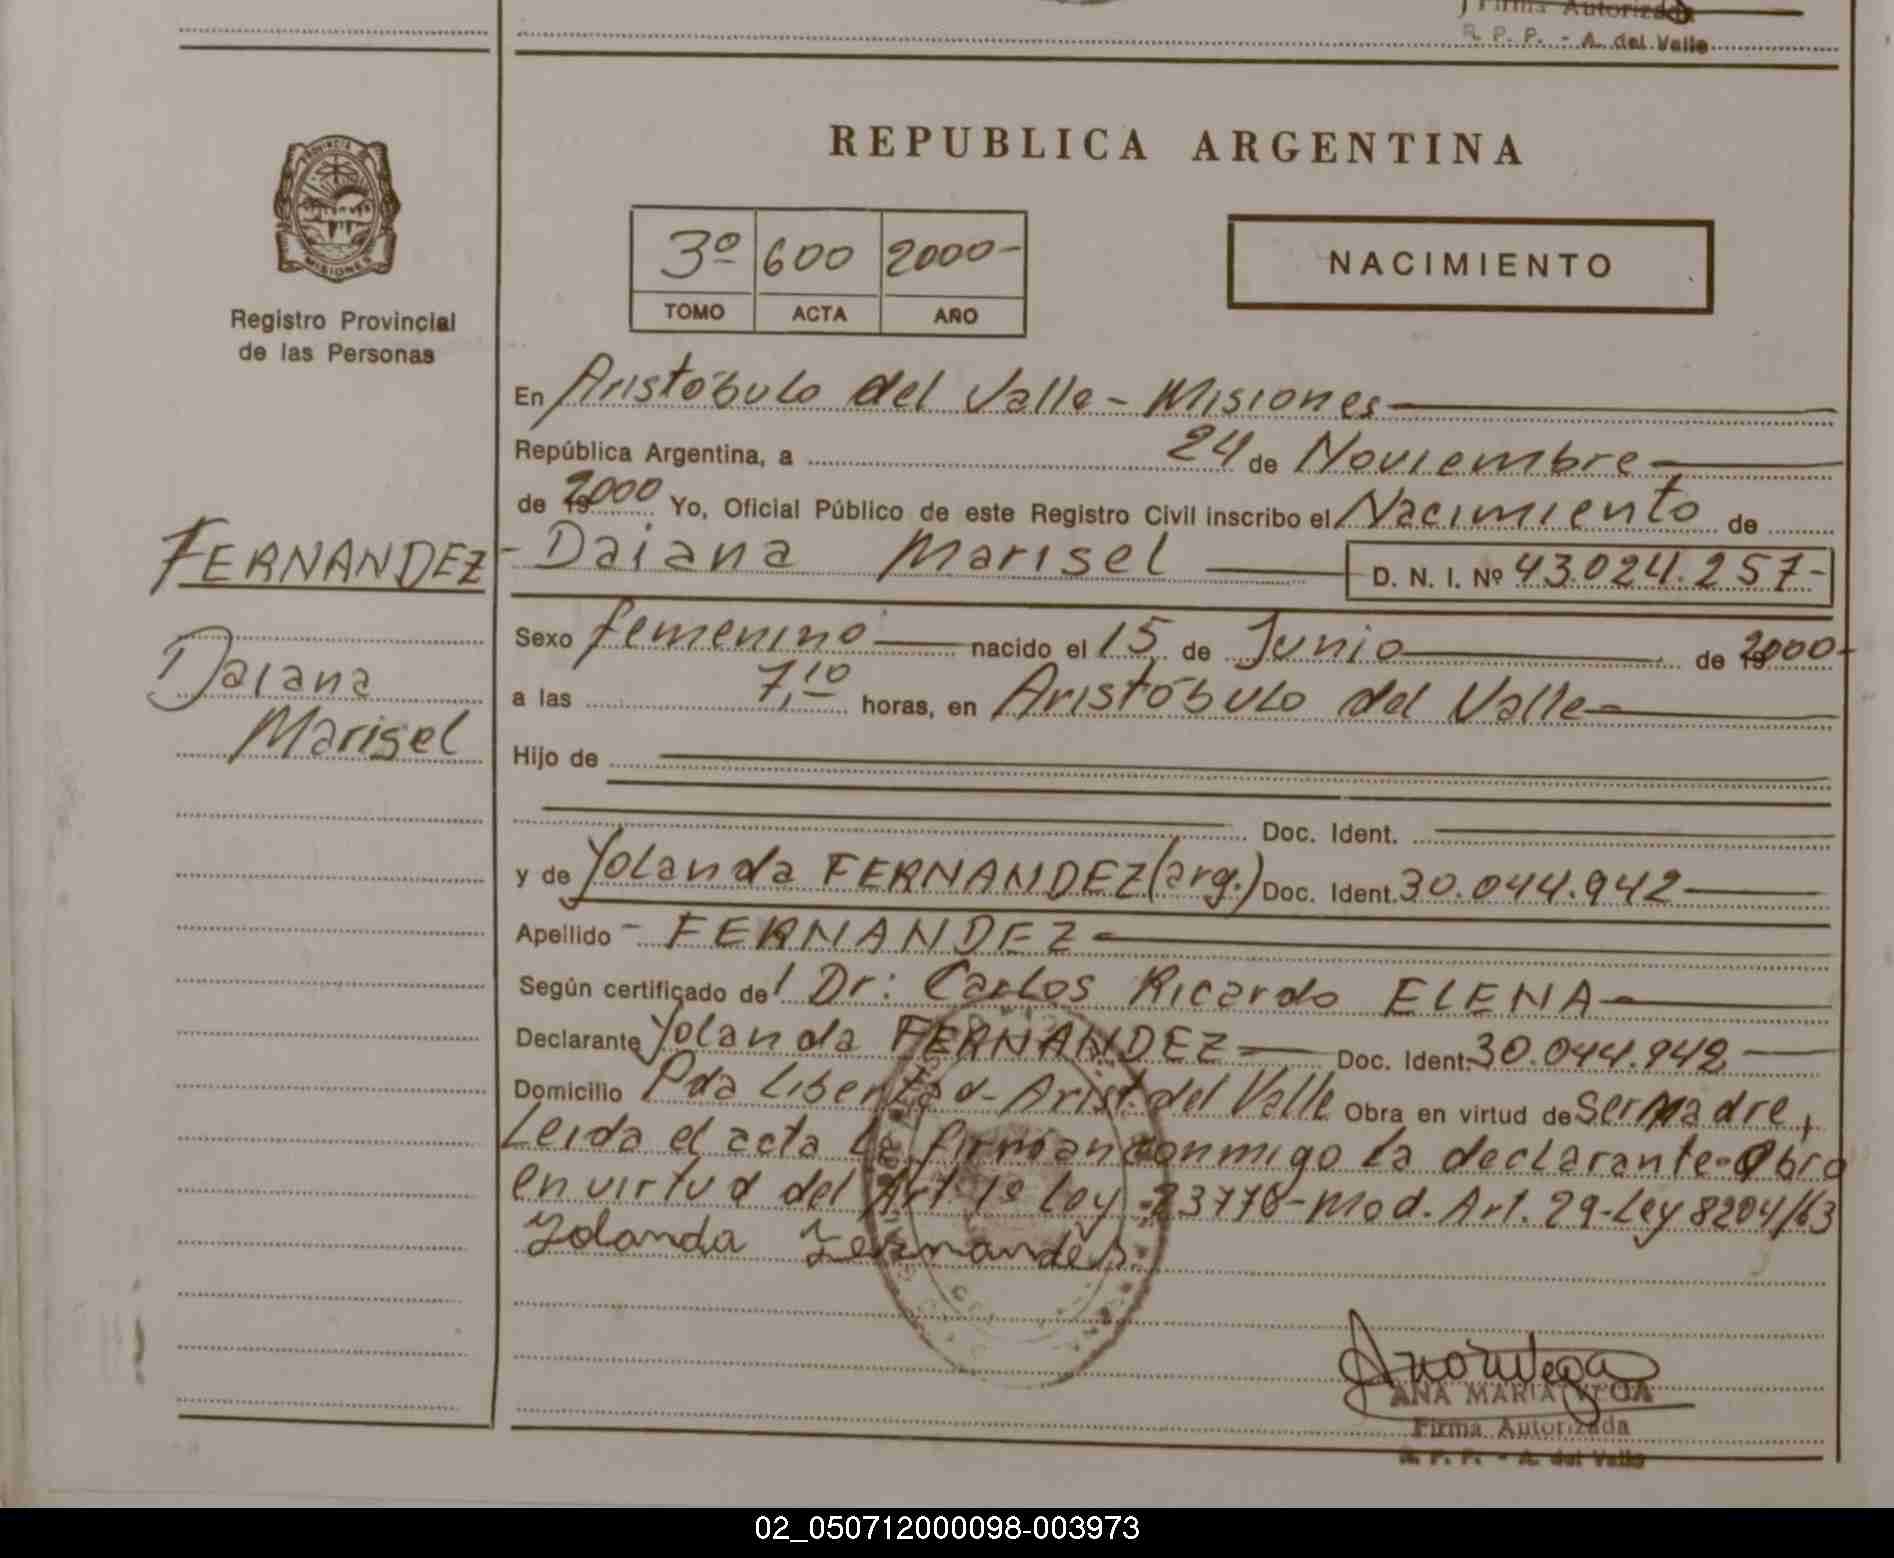 Firma Autorizada
R. P. P. - A. del Valle
PROVINCIA
MISIONES
Registro Provincial
de las Personas
REPUBLICA ARGENTINA
3º 600 2000-
TOMO ACTA AÑO
NACIMIENTO
En Aristóbulo del Valle - Misiones
República Argentina, a 24 de Noviembre
de 2000 Yo, Oficial Público de este Registro Civil inscribo el Nacimiento de
FERNANDEZ - Daiana Marisel D. N. I. Nº 43.024.257-
Daiana
Marisel
Sexo femenino nacido el 15 de Junio de 2000-
a las 7,10 horas, en Aristóbulo del Valle
Hijo de
Doc. Ident.
y de Yolanda FERNANDEZ (arg.) Doc. Ident. 30.044.942
Apellido - FERNANDEZ -
Según certificado del Dr: Carlos Ricardo ELENA
Declarante Yolanda FERNANDEZ Doc. Ident. 30.044.942
Domicilio Pda Libertad - Arist. del Valle Obra en virtud de Ser Madre,
Leida el acta la firman conmigo la declarante - Obro
en virtud del Art 1º Ley 23776 - Mod. Art. 29 - Ley 8204/63
Yolanda Fernandes
ANA MARIA VEGA
Firma Autorizada
R. P. P. - A. del Valle
02_050712000098-003973